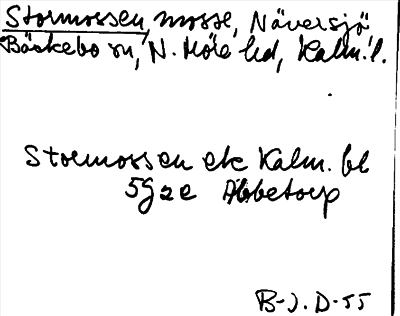 Stormossen, mosse, Näversjö
Bäckebo sn, N. Möre hd, Kalm. l.
Stormossen ek Kalm. bl
5G2e Abbetorp
B-J. D-55